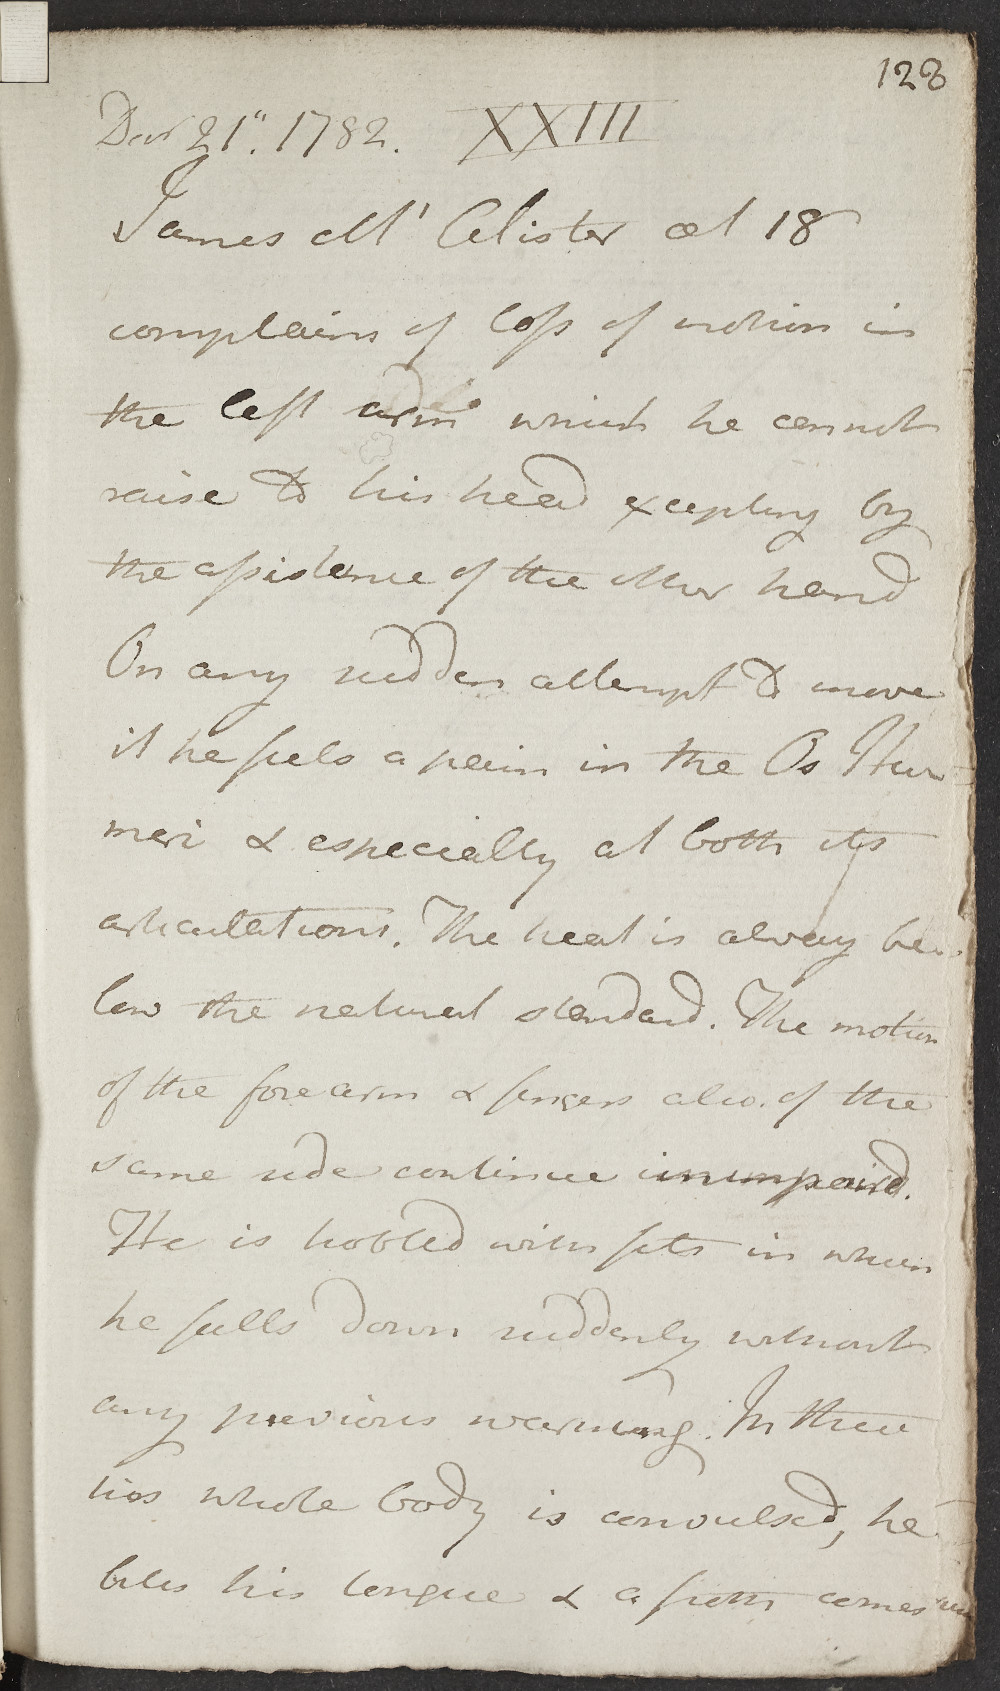 128
Decr 21st. 1782. XXIII
James McAlister æt 18
complains of loss of motion in
the left arm which he cannot
raise to his head excepting by
the assistance of the other hand
On any sudden attempt to move
it he feels a pain in the Os Hu-
meri & especially at both its
articulations. The heat is alway be-
low the natural standard. The motion
of the fore arm & fingers also. of the
same side continue unimpaird.
He is trobled with fits in which
he falls down suddenly without
any previous warning. In these
his whole body is convulsed, he
bites his tongue & a froth comes